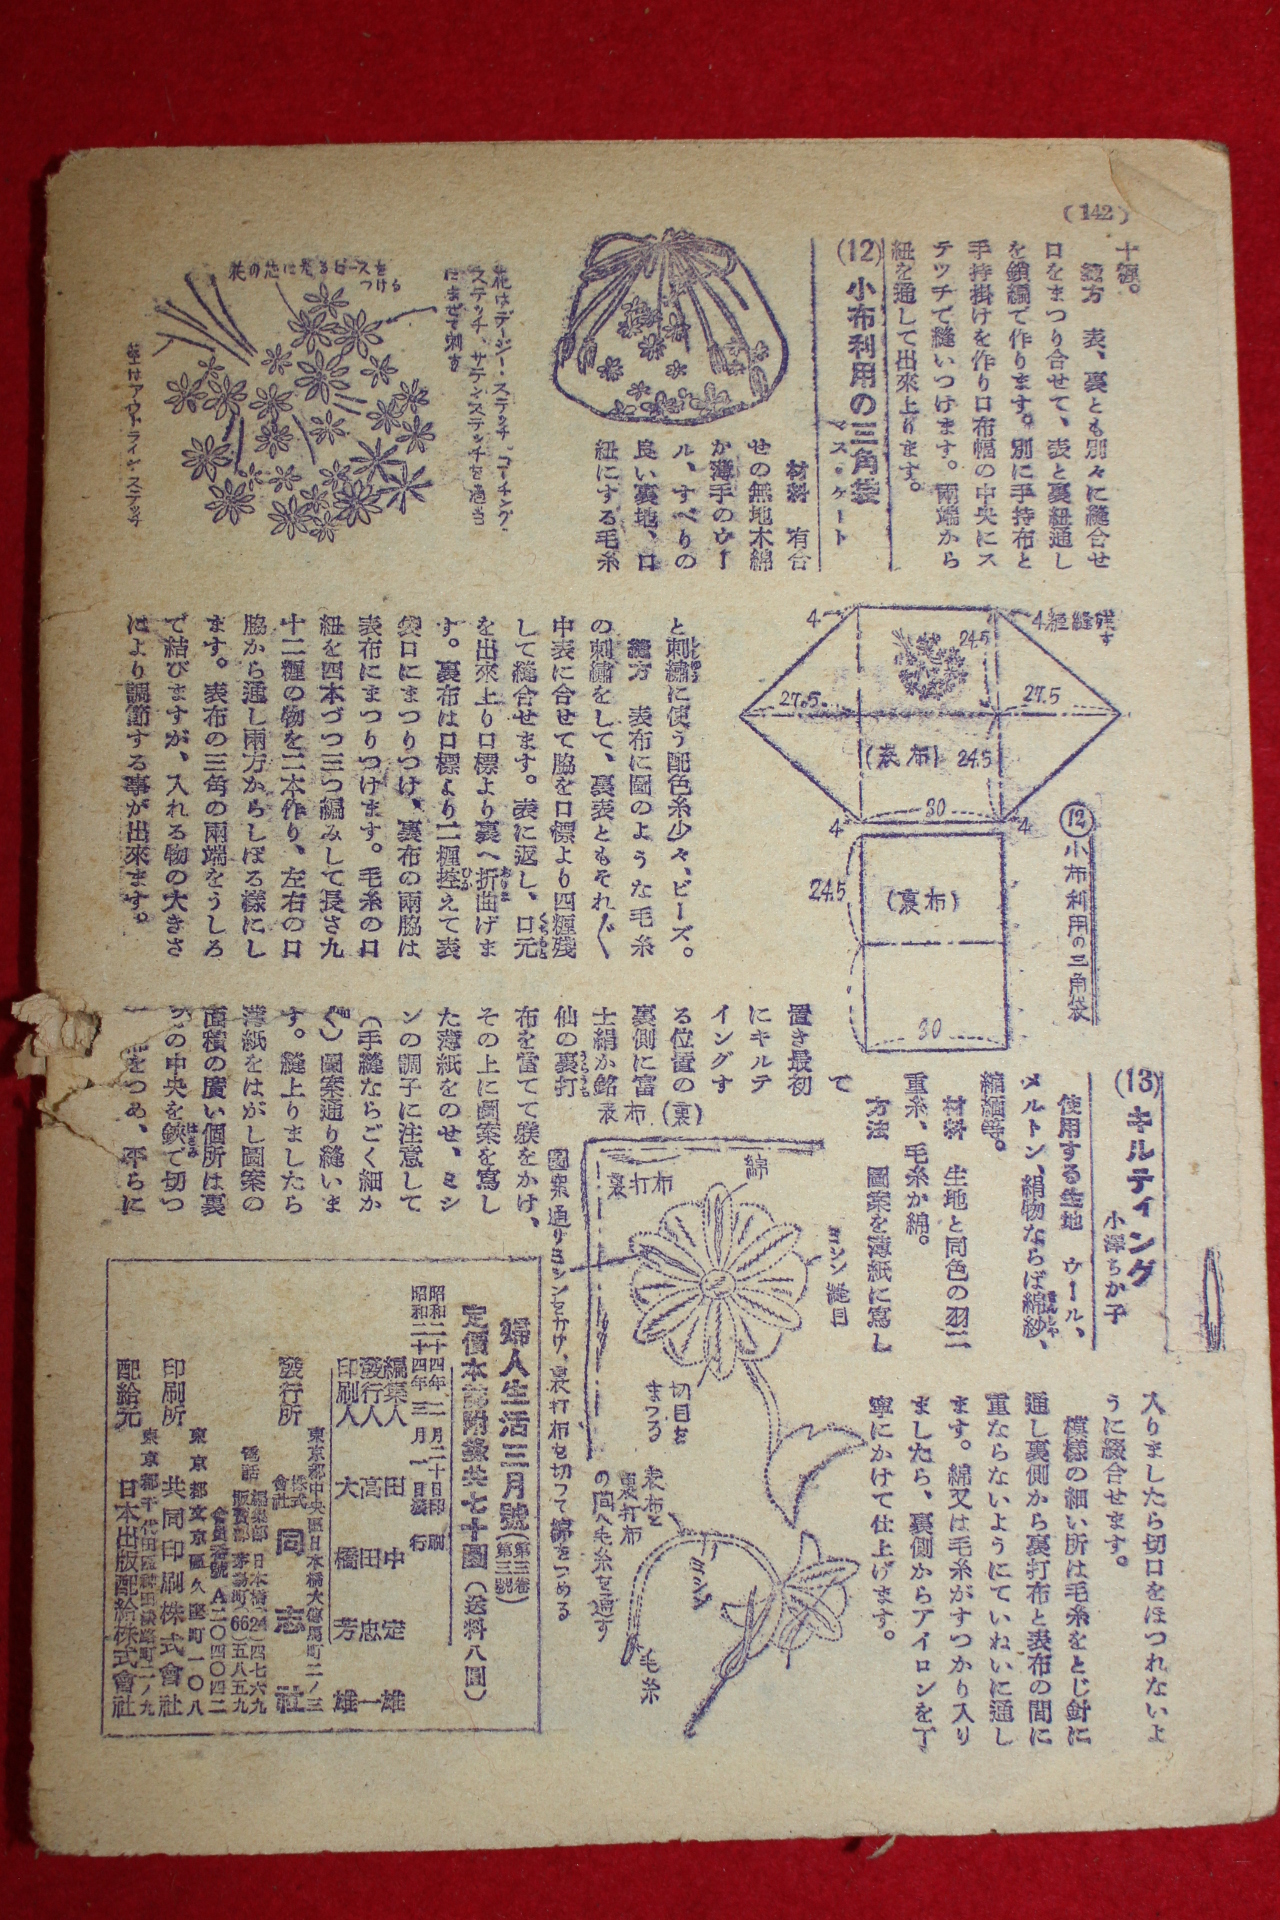 (142)
十糎。
縫方　表、裏とも別々に縫合せ
口をまつり合せて、表と裏紐通し
を鎖編で作ります。別に手持布と
手持掛けを作り口布幅の中央にス
テッチで縫いつけます。両端から
紐を通して出來上ります。
(12) 小布利用の三角袋
マス・ケート
材料　有合
せの無地木綿
か薄手のウー
ル、すべりの
良い裏地、口
紐にする毛糸
花はデージー・ステッチ、コーチング・
ステッチ、サテンステッチを適当
にまぜて刺す
花の芯になるビーズを
つける
莖はアウトライン・ステッチ
4糎縫残す
4
24.5
27.5
27.5
(表布)
24.5
30
4
4
24.5
(裏布)
30
⑫小布利用の三角袋
と刺繡に使う配色糸少々、ビーズ。
縫方　表布に圖のような毛糸
の刺繡をして、裏表ともそれ〲
中表に合せて脇を口標より四糎殘
して縫合せます。表に返し、口元
を出來上り口標より裏へ折曲げま
す。裏布は口標より二糎控えて表
袋口にまつりつけ、裏布の兩脇は
表布にまつりつけます。毛糸の口
紐を四本づつ三つ編みして長さ九
十二糎の物を二本作り、左右の口
脇から通し兩方からしぼる樣にし
ます。表布の三角の兩端をうしろ
で結びますが、入れる物の大きさ
により調節する事が出來ます。
(13) キルティング
小澤ちか子
使用する生地　ウール、
メルトン、絹物ならば綿紗、
縮緬等。
材料　生地と同色の羽二
重糸、毛糸か綿。
方法　圖案を薄紙に寫し
て
置き最初
にキルテ
イングす
る位置の
裏側に富
士絹か銘
仙の裏打
布を當てて躾をかけ、
その上に圖案を寫し
た薄紙をのせ、ミシ
ンの調子に注意して
(手縫ならごく細か
く)圖案通り縫いま
す。縫上りましたら
薄紙をはがし圖案の
面積の廣い個所は裏
の中央を鋏で切つ
をつめ、平らに
(裏)
表布
裏打布
綿
ミシン縫目
圖案通りミシンをかけ、裏打布を切つて綿をつめる
切目を
まつる
表布と
裏打布
の間へ毛糸を通す
ミシン
毛糸
入りましたら切口をほつれないよ
うに綴合せます。
模樣の細い所は毛糸をとじ針に
通し裏側から裏打布と表布の間に
重ならないようにていねいに通し
ます。綿又は毛糸がすつかり入り
ましたら、裏側からアイロンを丁
寧にかけて仕上げます。
婦人生活三月號(第三卷第三號)
定價本誌附錄共七十圓(送料八圓)
昭和二十四年二月二十日印刷
昭和二十四年三月一日發行
編集人　田中定雄
發行人　高田忠一
印刷人　大橋芳雄
東京都中央區日本橋大傳馬町二ノ三
發行所　株式會社　同志社
電話　編集部　日本橋(24)四七六九
販賣部　茅場町(66)五八五九
會員番號　A二〇四〇四二
東京都文京區久堅町一〇八
印刷所　共同印刷株式會社
東京都千代田區神田淡路町二ノ九
配給元　日本出版配給株式會社